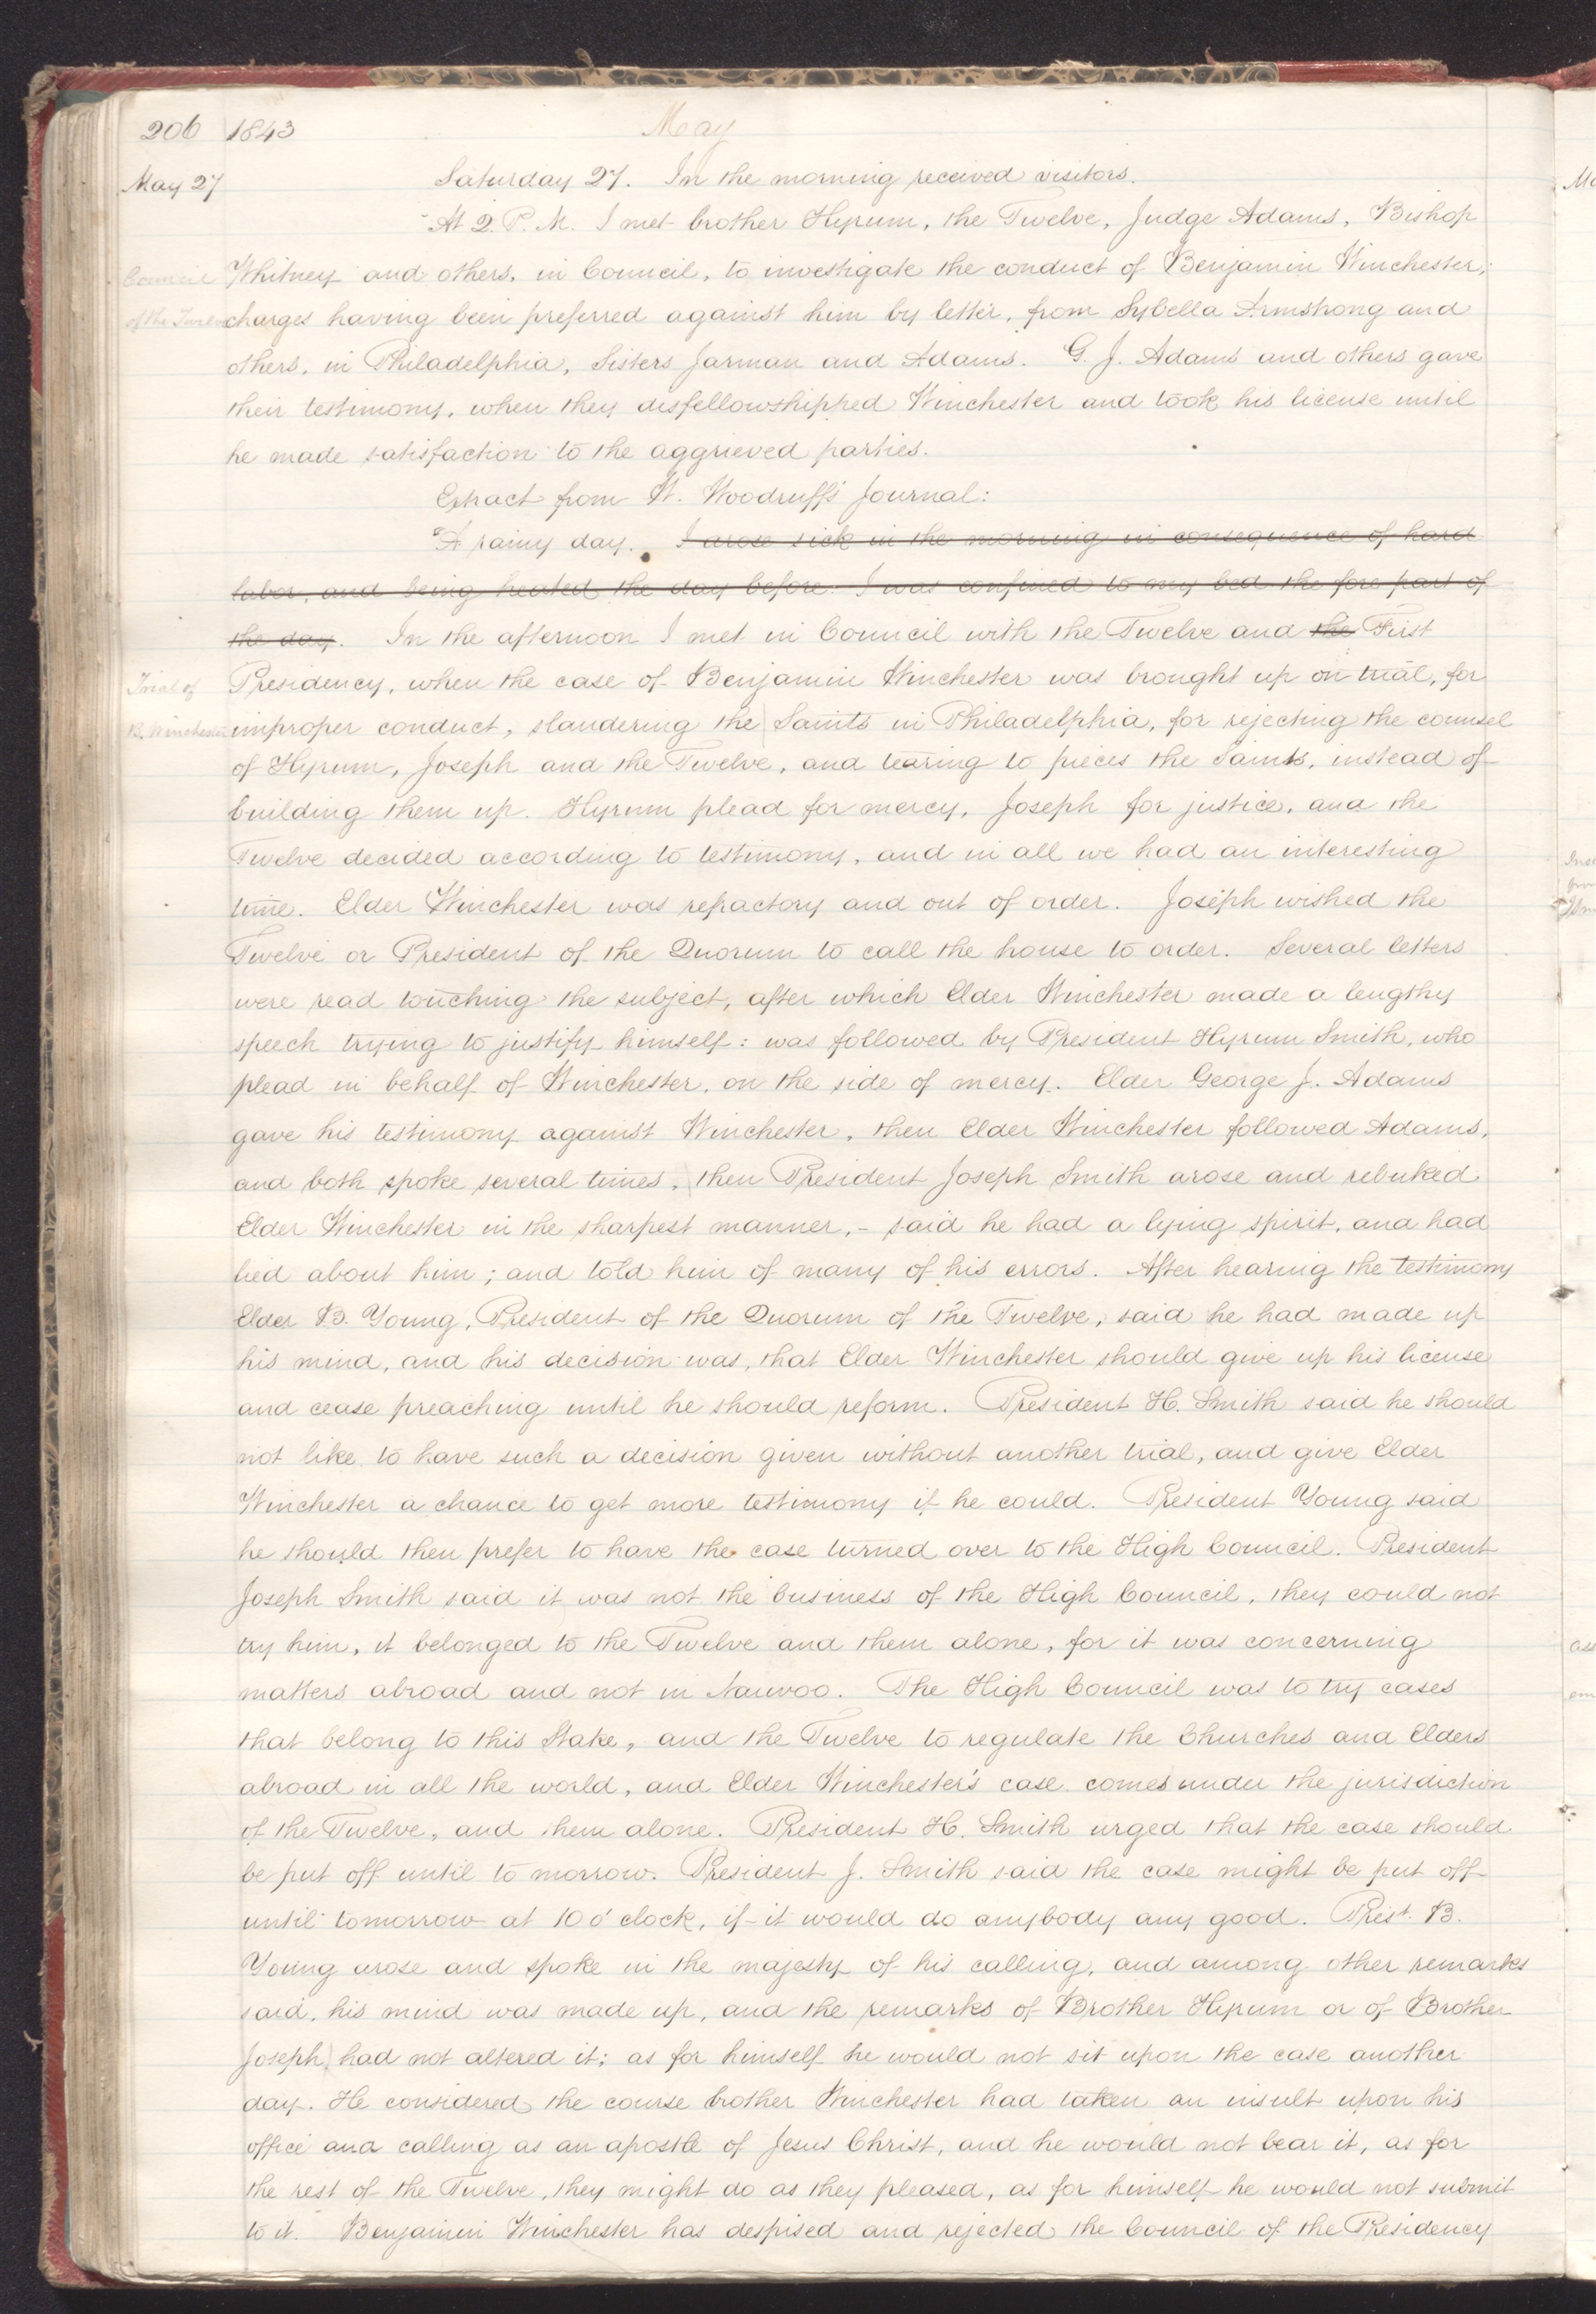 206 1843 May
May 27 Saturday 27. In the morning received visitors.
At 2. P. M. I met brother Hyrum, the Twelve, Judge Adams, Bishop
Council Whitney and others, in Council, to investigate the conduct of Benjamin Winchester,
of the Twelve charges having been preferred against him by letter, from Sybella Armstrong and
others, in Philadelphia, Sisters Jarman and Adams. G. J. Adams and others gave
their testimony, when they disfellowshipped Winchester and took his license until
he made satisfaction to the aggrieved parties.
Extract from W. Woodruff's Journal:
"A rainy day. I arose sick in the morning in consequence of hard
labor, and being heated the day before. I was confined to my bed the fore part of
the day. In the afternoon I met in Council with the Twelve and the First
Trial of Presidency, when the case of Benjamin Winchester was brought up on trial, for
B. Winchester improper conduct, slandering the Saints in Philadelphia, for rejecting the counsel
of Hyrum, Joseph and the Twelve, and tearing to pieces the Saints, instead of
building them up. Hyrum plead for mercy, Joseph for justice, and the
Twelve decided according to testimony, and in all we had an interesting
time. Elder Winchester was refractory and out of order. Joseph wished the
Twelve or President of the Quorum to call the house to order. Several letters
were read touching the subject, after which Elder Winchester made a lengthy
speech trying to justify himself: was followed by President Hyrum Smith, who
plead in behalf of Winchester, on the side of mercy. Elder George J. Adams
gave his testimony against Winchester, then Elder Winchester followed Adams,
and both spoke several times, then President Joseph Smith arose and rebuked
Elder Winchester in the sharpest manner,- said he had a lying spirit, and had
lied about him; and told him of many of his errors. After hearing the testimony
Elder B. Young, President of the Quorum of the Twelve, said he had made up
his mind, and his decision was, that Elder Winchester should give up his license
and cease preaching until he should reform. President H. Smith said he should
not like to have such a decision given without another trial, and give Elder
Winchester a chance to get more testimony if he could. President Young said
he should then prefer to have the case turned over to the High Council. President
Joseph Smith said it was not the business of the High Council, they could not
try him, it belonged to the Twelve and them alone, for it was concerning
matters abroad and not in Nauvoo. The High Council was to try cases
that belong to this Stake, and the Twelve to regulate the Churches and Elders
abroad in all the world, and Elder Winchester's case comes under the jurisdiction
of the Twelve, and them alone. President H. Smith urged that the case should
be put off until to morrow. President J. Smith said the case might be put off
until tomorrow at 10 o'clock, if it would do anybody any good. Prest. B.
Young arose and spoke in the majesty of his calling, and among other remarks
said, his mind was made up, and the remarks of Brother Hyrum or of Brother
Joseph had not altered it; as for himself he would not sit upon the case another
day. He considered the course brother Winchester had taken an insult upon his
office and calling as an apostle of Jesus Christ, and he would not bear it, as for
the rest of the Twelve, they might do as they pleased, as for himself he would not submit
to it. Benjamin Winchester has despised and rejected the Council of the Presidency